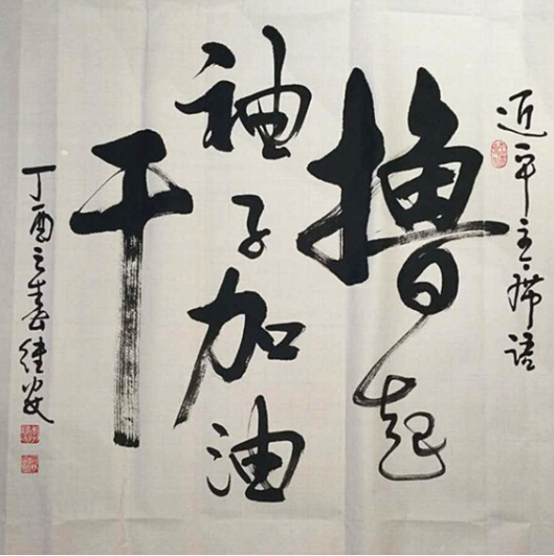 近平主席语
撸起
袖子加油
干
丁酉之春继安